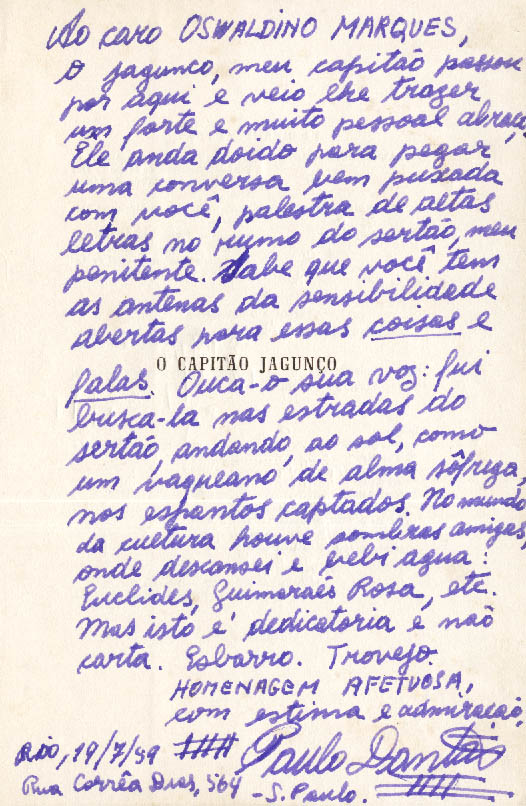 Ao caro OSWALDINO MARQUES,
o jagunco, meu capitão passou
por aqui e veio lhe trazer
um forte e muito pessoal abraço.
Ele anda doido para pegar
uma conversa bem puxada
com você, palestra de altas
letras no rumo do sertão, meu
penitente. Sabe que você tem
as antenas da sensibilidade
abertas para essas coisas e
O CAPITÃO JAGUNÇO
falas. Ouca-o sua voz: fui
busca-la nas estradas do
sertão, andando, ao sol, como
um vaqueano de alma sôfrega,
nos espantos captados. No mundo
da cultura houve sombras amigas,
onde descansei e bebi agua:
Euclides, Guimarães Rosa, etc.
Mas isto é dedicatoria e não
carta. Esbarro. Trovejo.
HOMENAGEM AFETUOSA,
com estima e admiração,
Rio, 19/7/59 Paulo Dantas
Rua Corrêa Dias, 564
- S. Paulo